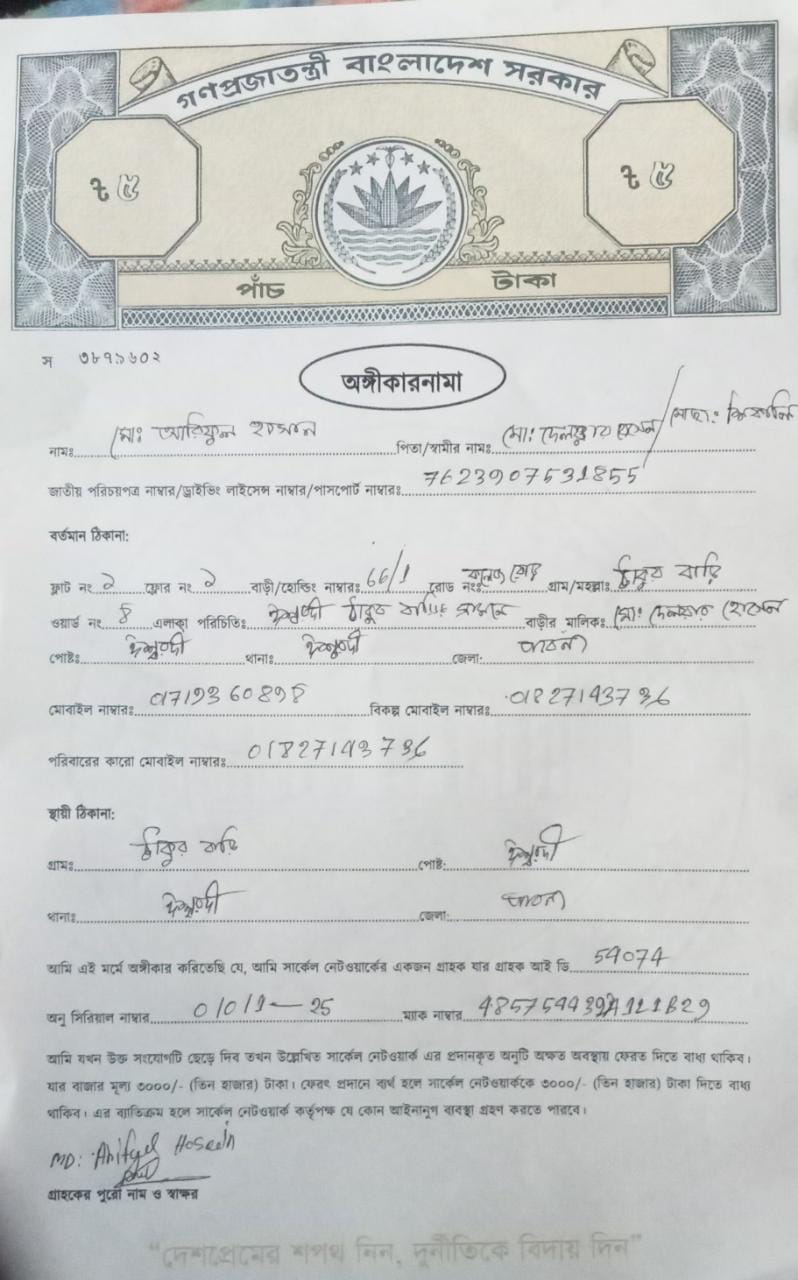 গণপ্রজাতন্ত্রী বাংলাদেশ সরকার
৳ ৫ ৳ ৫
পাঁচ টাকা
স ৩৮৭১৬০২
অঙ্গীকারনামা
নামঃ মোঃ আরিফুল হাসান পিতা/স্বামীর নামঃ মো: দেলোয়ার হোসেন/মোছা:
জাতীয় পরিচয়পত্র নাম্বার/ড্রাইভিং লাইসেন্স নাম্বার/পাসপোর্ট নাম্বারঃ 7623907531855
বর্তমান ঠিকানা:
ফ্লাট নং ১ ফ্লোর নং ১ বাড়ী/হোল্ডিং নাম্বারঃ 66/1 রোড নংঃ কলেজ রোড গ্রাম/মহল্লাঃ ঠাকুর বাড়ি
ওয়ার্ড নং 8 এলাকা পরিচিতিঃ ঈশ্বরদী ঠাকুর বাড়ির সামনে বাড়ীর মালিকঃ মো: দেলোয়ার হোসেন
পোষ্টঃ ঈশ্বরদী থানাঃ ঈশ্বরদী জেলা: পাবনা
মোবাইল নাম্বারঃ 01719360898 বিকল্প মোবাইল নাম্বারঃ 01827143736
পরিবারের কারো মোবাইল নাম্বারঃ 01827143736
স্থায়ী ঠিকানা:
গ্রামঃ ঠাকুর বাড়ি পোষ্ট: ঈশ্বরদী
থানাঃ ঈশ্বরদী জেলা: পাবনা
আমি এই মর্মে অঙ্গীকার করিতেছি যে, আমি সার্কেল নেটওয়ার্কের একজন গ্রাহক যার গ্রাহক আই ডি 54074
অনু সিরিয়াল নাম্বার 0/0/1-25 ম্যাক নাম্বার
আমি যখন উক্ত সংযোগটি ছেড়ে দিব তখন উল্লেখিত সার্কেল নেটওয়ার্ক এর প্রদানকৃত অনুটি অক্ষত অবস্থায় ফেরত দিতে বাধ্য থাকিব।
যার বাজার মূল্য ৩০০০/- (তিন হাজার) টাকা। ফেরৎ প্রদানে ব্যর্থ হলে সার্কেল নেটওয়ার্ককে ৩০০০/- (তিন হাজার) টাকা দিতে বাধ্য
থাকিব। এর ব্যতিক্রম হলে সার্কেল নেটওয়ার্ক কর্তৃপক্ষ যে কোন আইনানুগ ব্যবস্থা গ্রহণ করতে পারবে।
MD: Arifyel Hosein
গ্রাহকের পুরো নাম ও স্বাক্ষর
“দেশপ্রেমের শপথ নিন, দুর্নীতিকে বিদায় দিন”